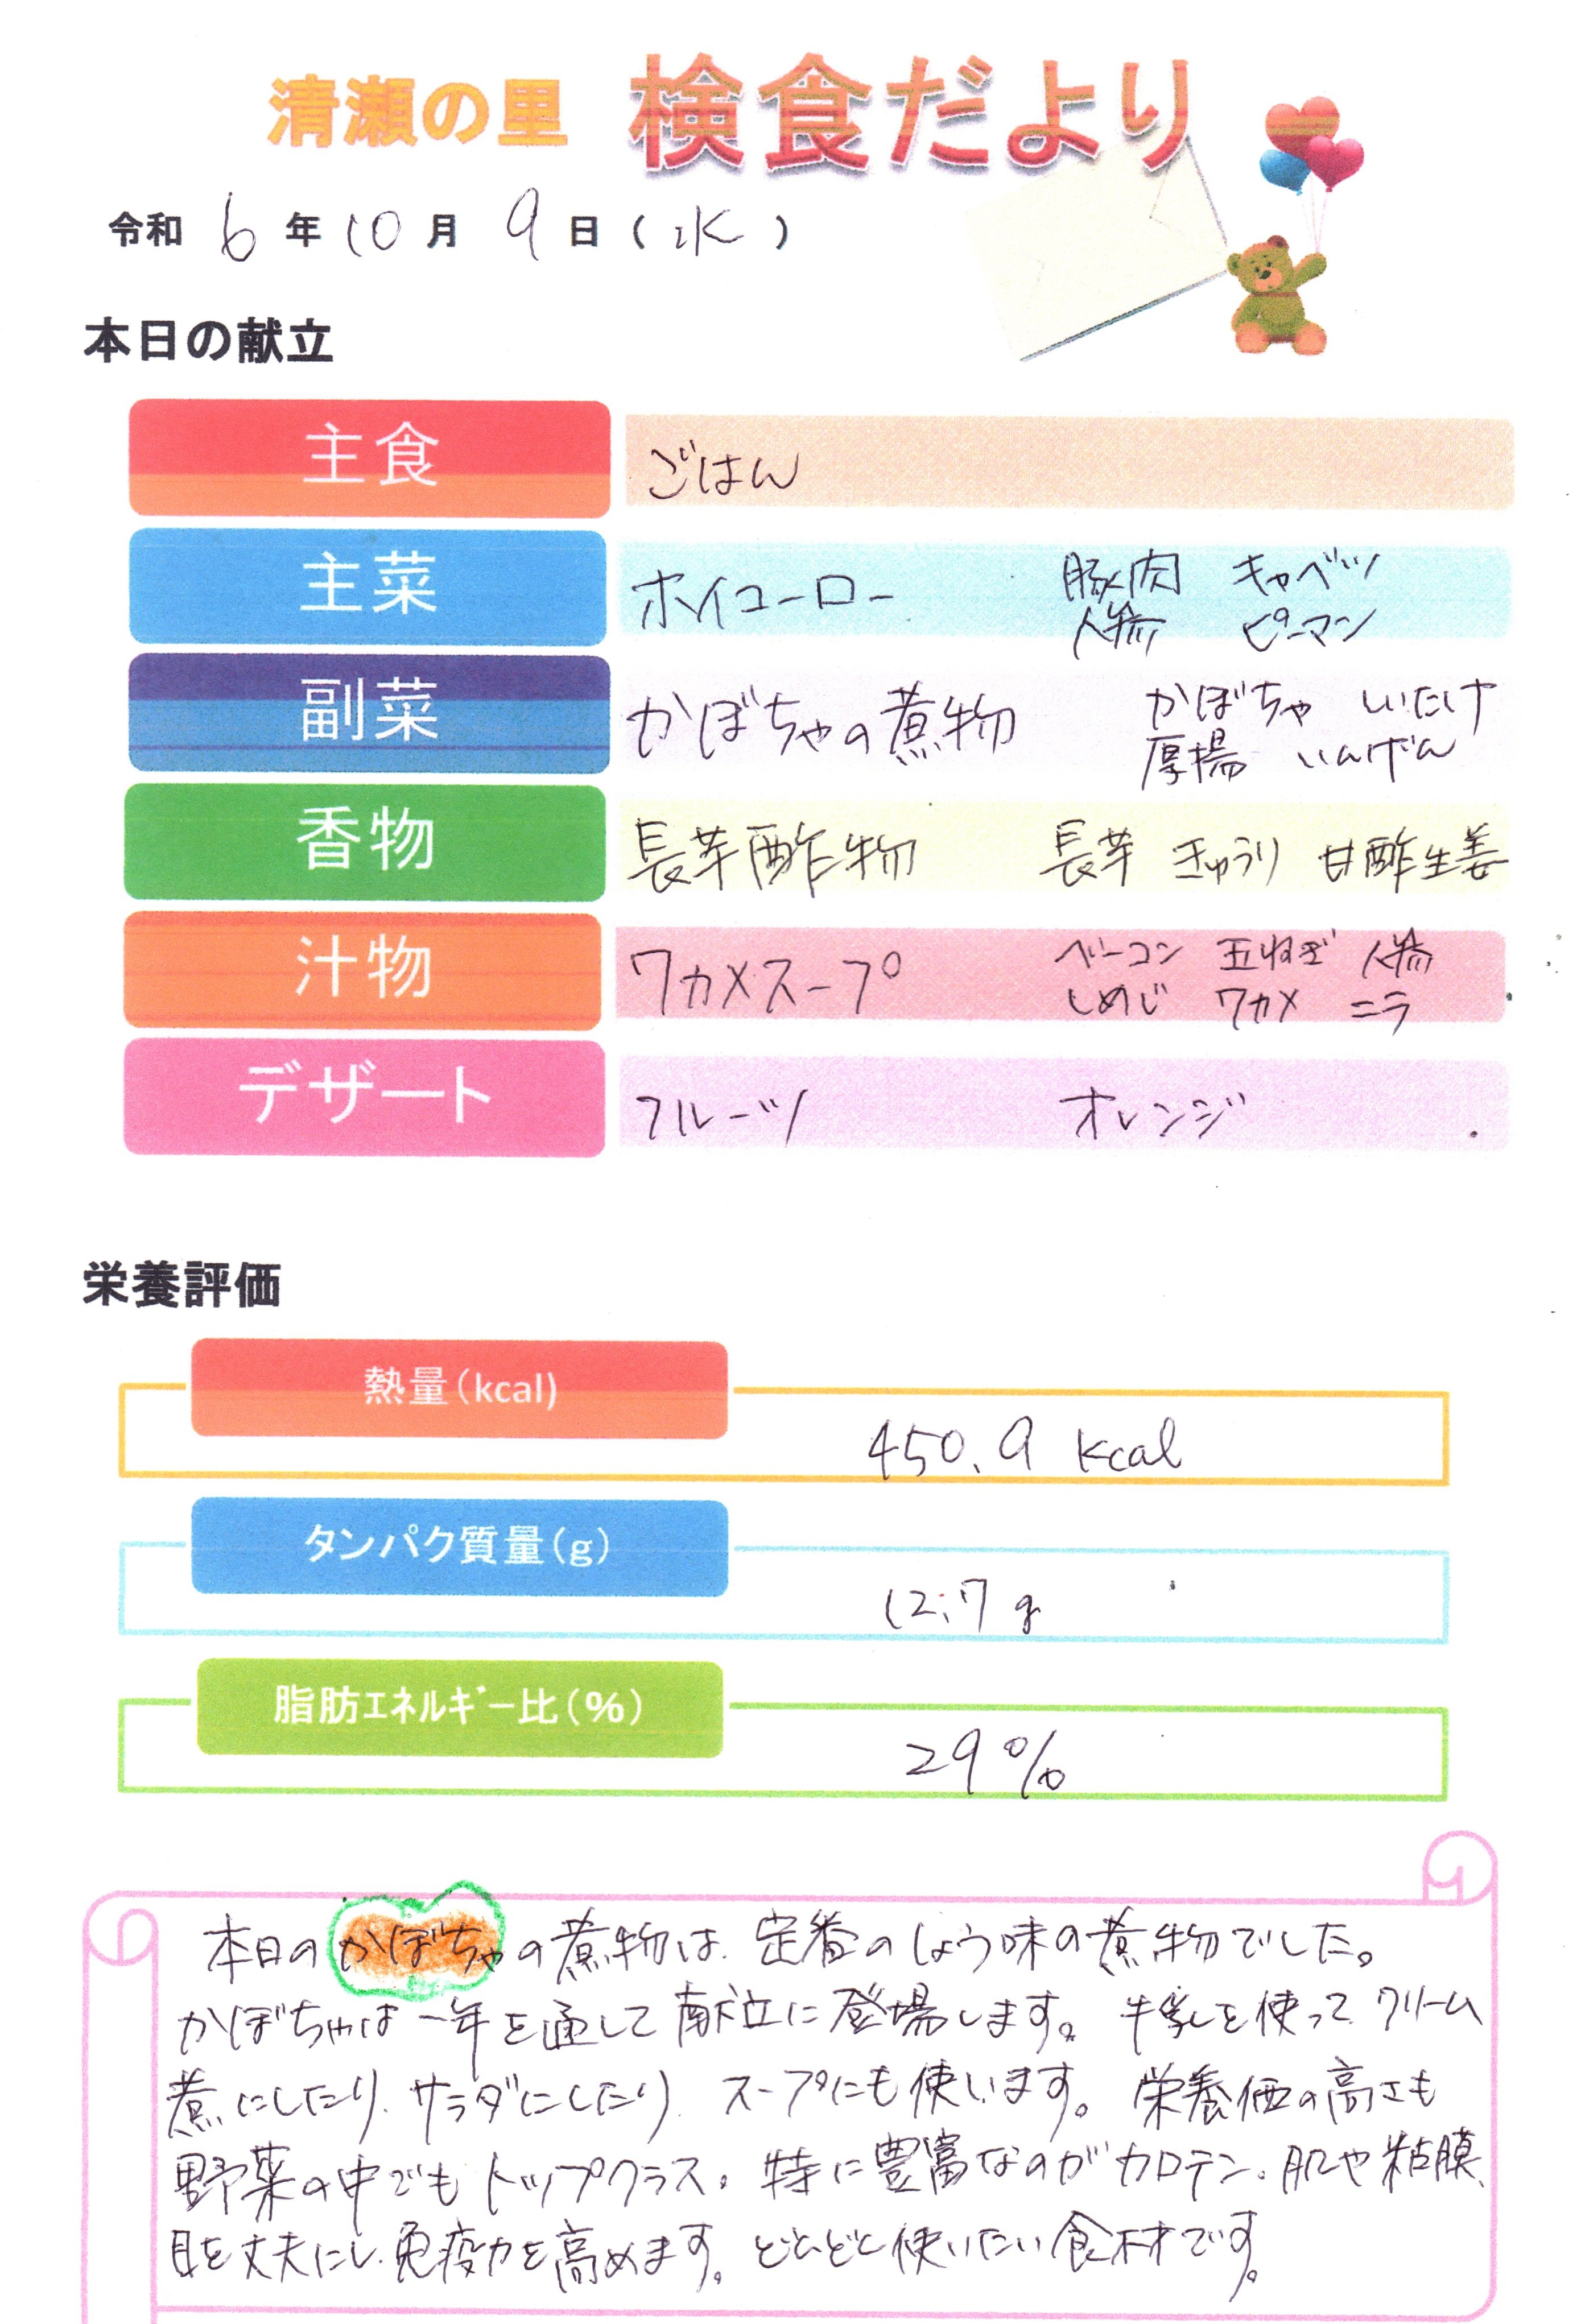 清瀬の里 検食だより
令和 6 年 10 月 9 日 ( 水 )
本日の献立
主食 ごはん
主菜 ホイコーロー 豚肉 キャベツ
人参 ピーマン
副菜 かぼちゃの煮物 かぼちゃ しいたけ
厚揚 いんげん
香物 長芋酢物 長芋 きゅうり 甘酢生姜
汁物 ワカメスープ ベーコン 玉ねぎ 人参
しめじ ワカメ ニラ
デザート フルーツ オレンジ
栄養評価
熱量(kcal) 450.9 kcal
タンパク質量(g) 12.7 g
脂肪エネルギー比(%) 29%
本日のかぼちゃの煮物は、定番のしょう味の煮物でした。
かぼちゃは一年を通して献立に登場します。牛乳を使って、クリーム
煮にしたり、サラダにしたり、スープにも使います。栄養価の高さも
野菜の中でもトップクラス。特に豊富なのがカロテン。肌や粘膜、
目を丈夫にし、免疫力を高めます。どんどん使いたい食材です。